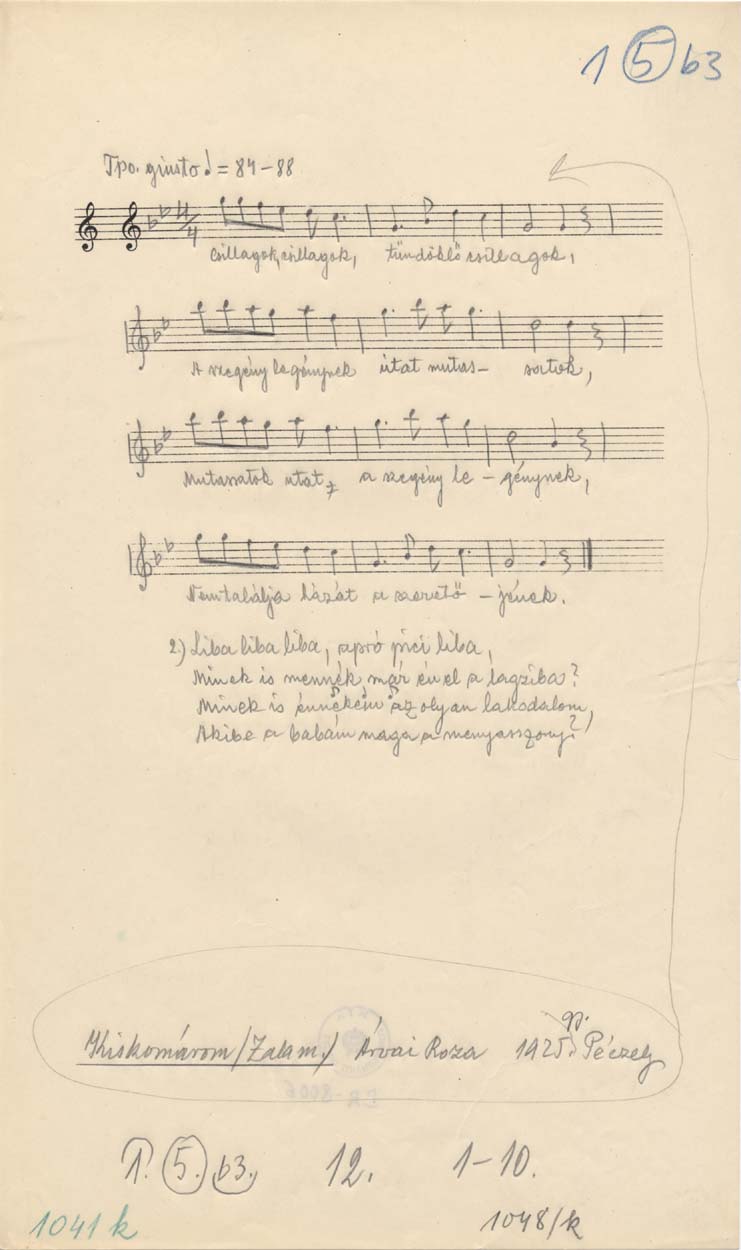 1 5 b3
Tpo. giusto ♩ = 84-88
4/4
Csillagok, csillagok, tündöklő csillagok,
A szegény legénynek útat mutas- satok,
Mutassatok utat, a szegény le - génynek,
Nem találja házát a szerető - jének.
2.) Liba liba liba, apró pici liba,
Minek is mennék már én el a lagziba?
Minek is énnékem az olyan lakodalom,
Akibe a babám maga a menyasszony?
Kiskomárom /Zalam./ Árvai Roza 1925 gy. Péczely
1. 5. b3. 12. 1-10.
1041 k
1048/k